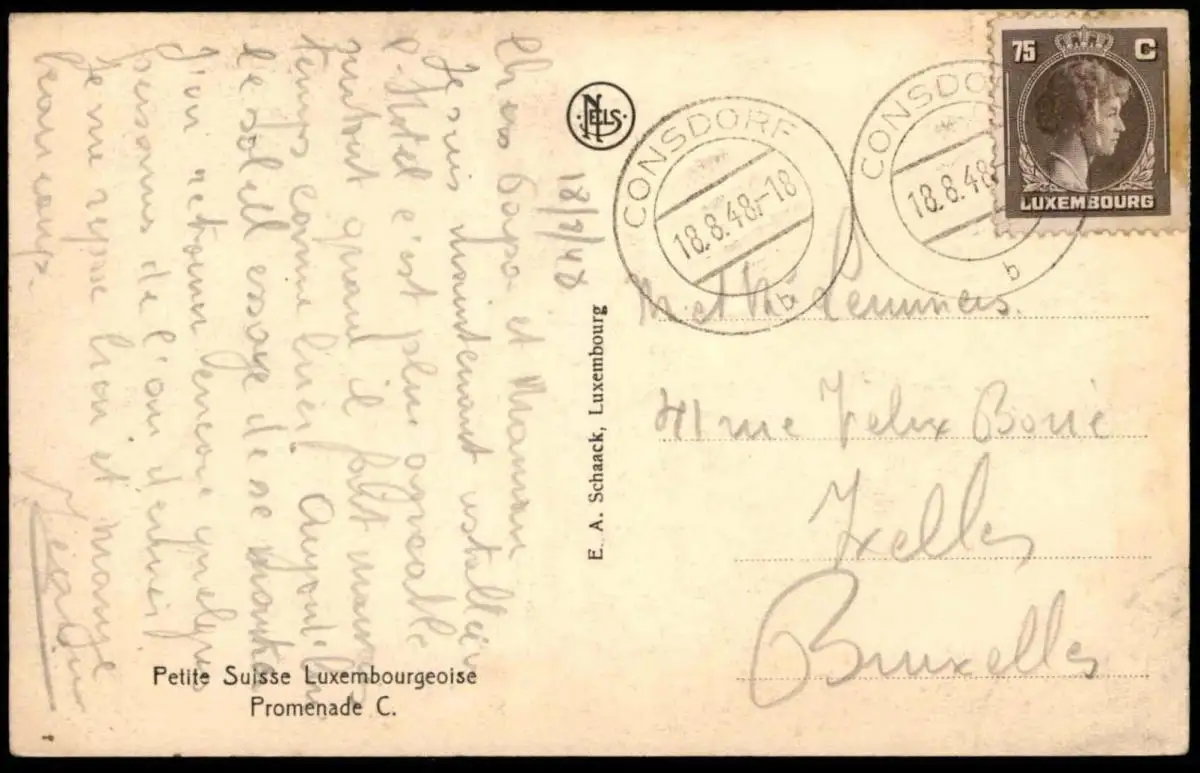 18/8/48
Chers Papa et Maman
Je suis maintenant installée à
l'hotel c'est plus agréable
surtout quand il fait mauvais
temps comme hier Aujourd'hui
le soleil essaye de se montrer
J'ai retrouvé encore quelques
personnes de l'an dernier
Je me repose bien et mange
beaucoup.
NELS
E. A. Schaack, Luxembourg
Petite Suisse Luxembourgeoise
Promenade C.
CONSDORF
18.8.48-18
b
CONSDO
18.8.48
b
75 C
LUXEMBOURG
M et Me Lemmers.
41 rue Félix Bové
Ixelles
Bruxelles